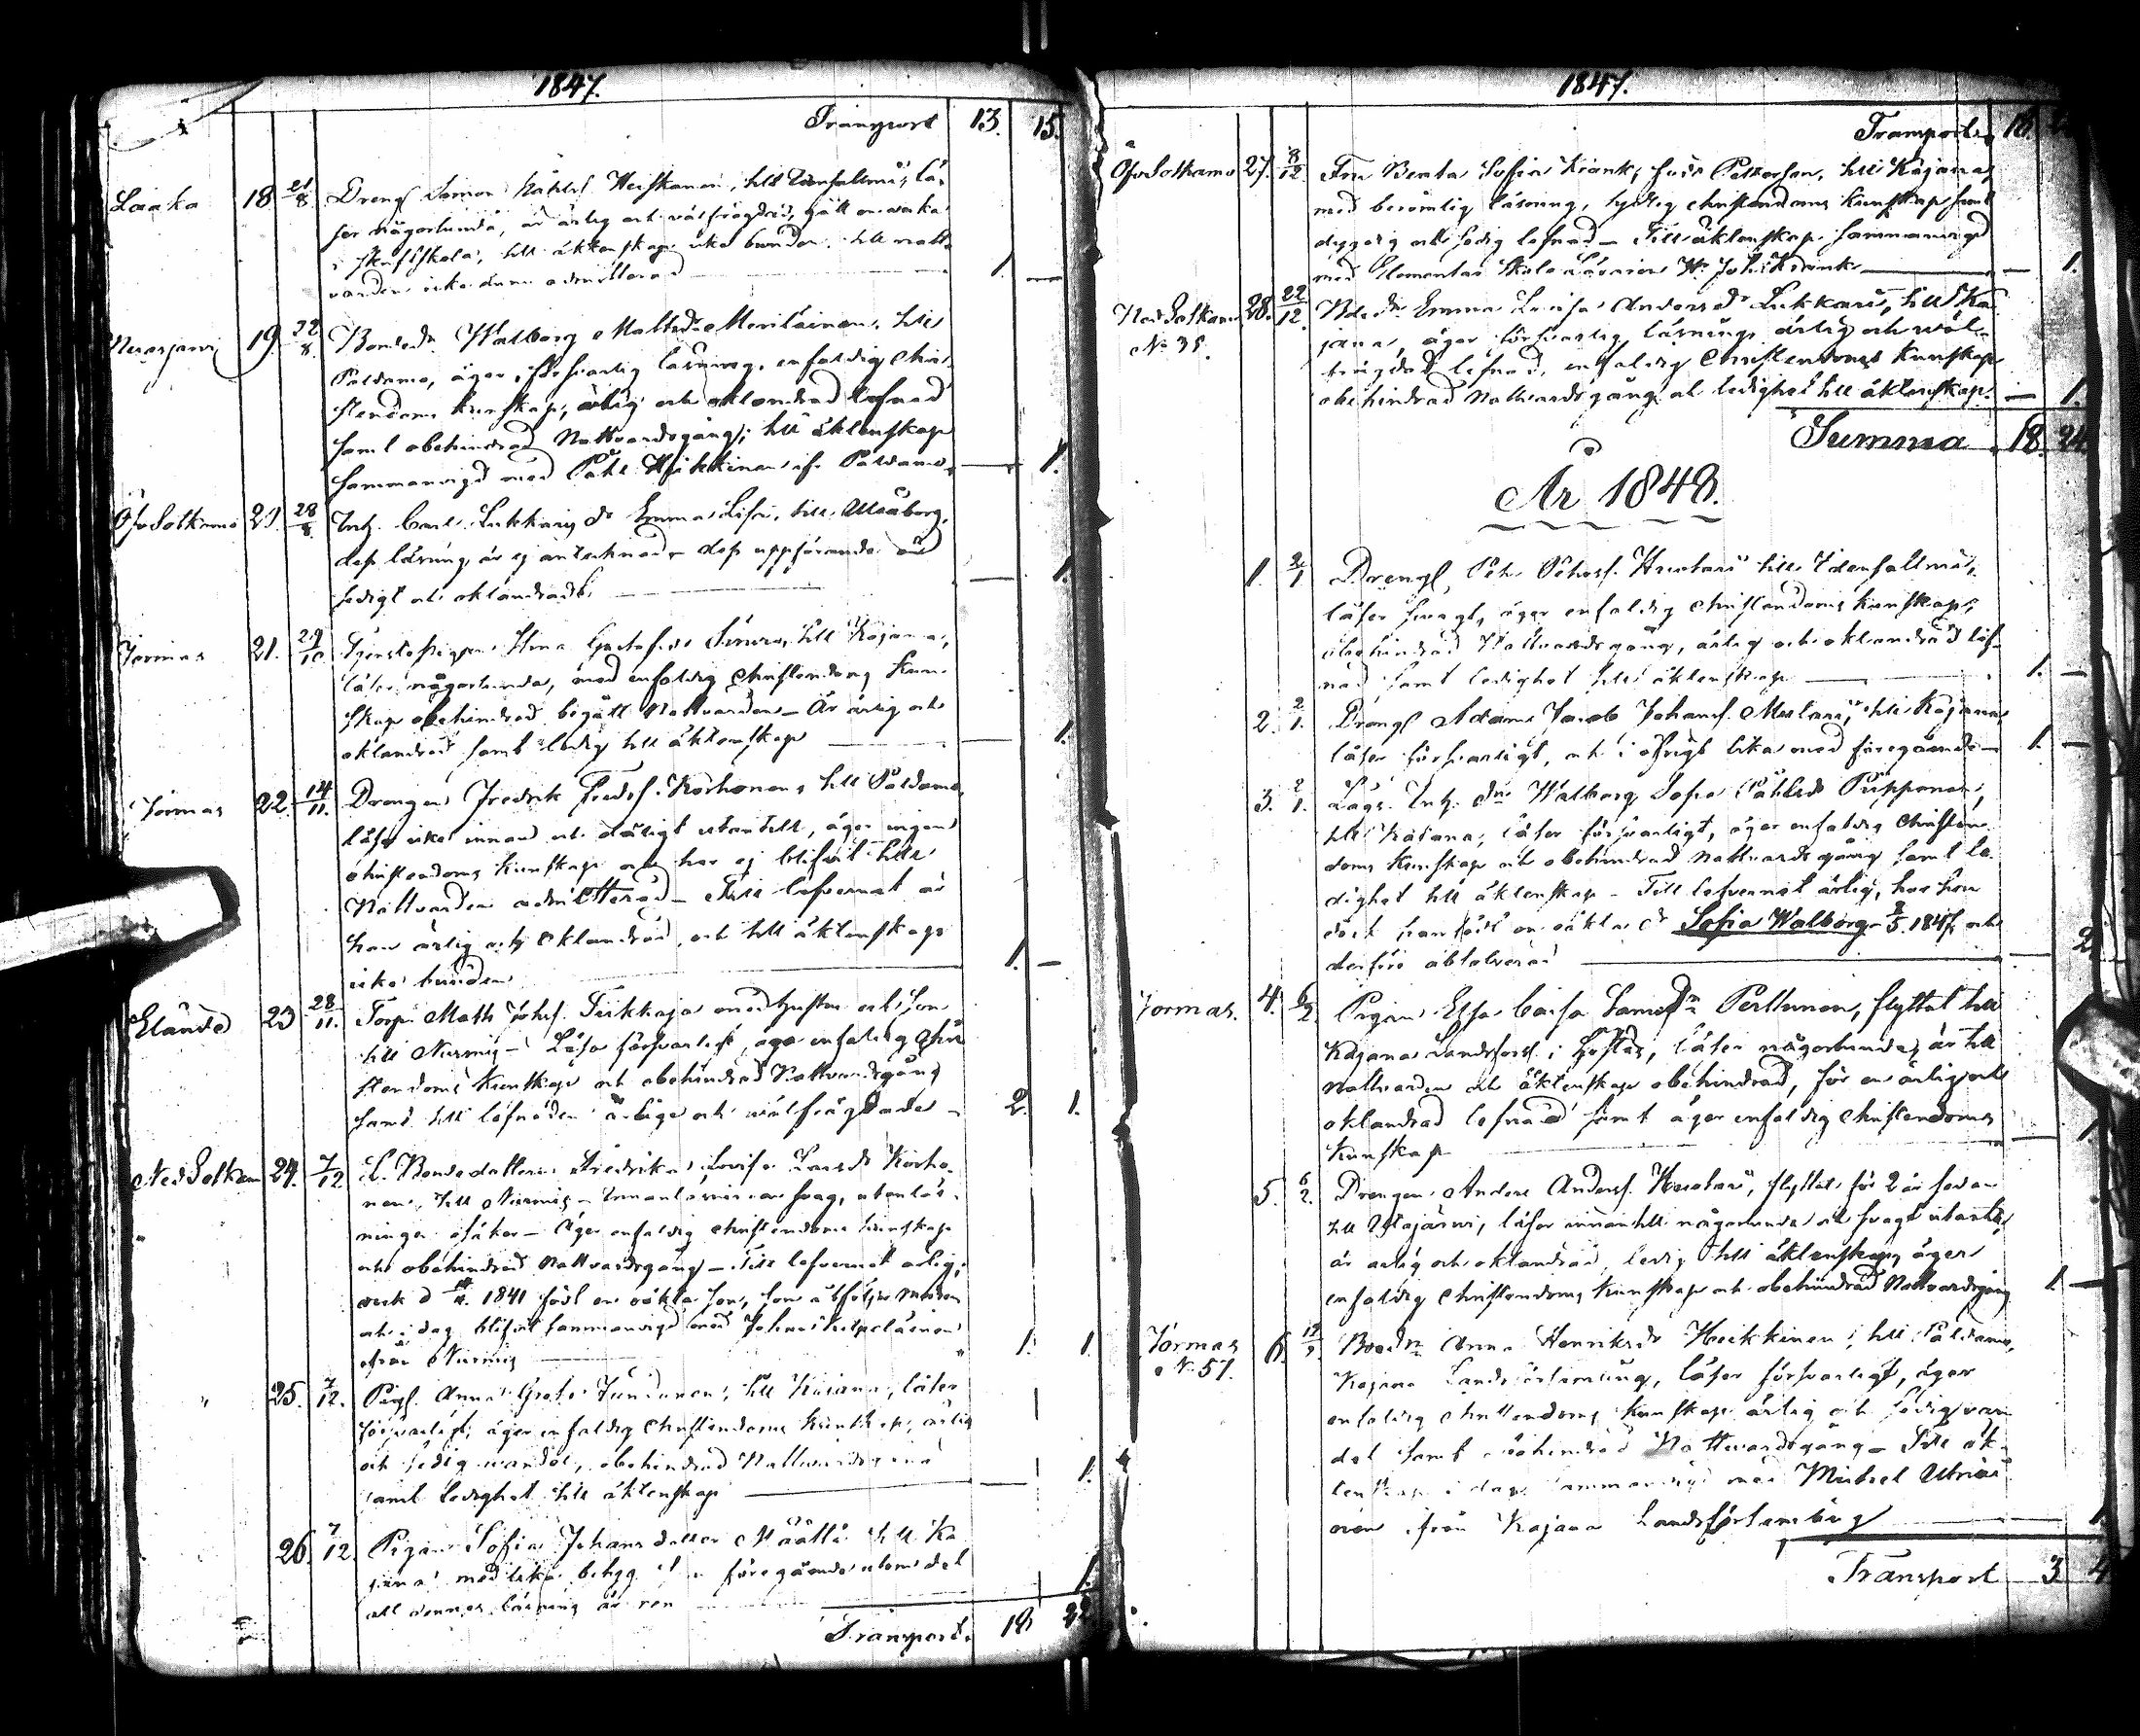 1847.
Transport 13. 15.
Laaka 18 21/8 Dreng Simon Påhlss Heiskanen, till Idensalmi, lä-
ser någorlunda, är ärlig och välfrägdad, gått
i skriftskola, till äktenskap icke bunden, till natt-
varden icke ännu admitterad 1. —
19. 22/8. Bondedr Walborg Mattsdr Meriläinen, till
Paldamo, äger försvarlig läsning, enfaldig Chri-
stendoms kunskap, ärlig och oklandrad lefnad
samt obehindrad Nattvardsgång; till äktenskap
sammanvigd med Påhl Heikkinen if. Paldamo. — 1.
Öfv Sotkamo 20. 28/8. Inh. Carl Lukkaris dr Emma Lisa, till Uleåborg,
dess läsning är ej antecknad, dess uppförande
sedigt och oklandradt. — 1.
Jormas 21. 29/10 Tjenstepigan Gustafsdr till Kajana,
läser någorlunda, med enfaldig Christendoms kun-
skap obehindrad begått Nattvarden — Är ärlig och
oklandrad samt ledig till äktenskap — 1.
Jormas 22. 14/11. Drengen Fredrik Fredss. Korhonen, till Paldamo,
läser icke innan och dåligt utantill, äger ingen
Christendoms kunskap och har ej blifvit till
Nattvarden admitterad — Till lefvernet är
han ärlig och oklandrad, och till äktenskap
icke bunden 1. —
23 28/11. Torp. Math Johss. Tirkkaja med hustru och son
till Nurmis — Läsa försvarligt, äga enfaldig Chri-
stendoms kunskap och obehindrad Nattvardsgång
samt till lefnaden ärlige och välfrägdade — 2. 1.
Ned Sotkam 24. 7/12 L. Bondedottern Fredrika Lovisa Larsdr Korho-
nen, till Nurmis — Innanläsningen svag, utanläs-
ningen osäker — Äger enfaldig Christendoms kunskap
och obehindrad Nattvardsgång — Till lefvernet ärlig,
1841 född en oäkta son, som åtföljer modren
och i dag blifvit sammanvigd med Johan
ifrån Nurmis 1. 1.
" 25. 7/12. Pig. Anna Greta Juntunen, till Kajana, läser
försvarligt, äger enfaldig Christendoms kunskap, ärlig
och sedig vandel, obehindrad Nattvardsgång
samt ledighet till äktenskap — 1.
26. 7/12. Pigan Sofia Johansdotter Määttä till Ka-
jana med lika betyg föregående utom det
att dennes läsning är ren 1.
Transport. 18 22
1847.
Transport. 18. 22
Öfv Sotkamo 27. 8/12. Fru Beata Sofia Krank, född Petterson, till Kajana,
med berömlig läsning, tydlig Christendoms kunskap samt
dygdig och sedig lefnad — Till äktenskap sammanvigd
med Elementar Skole Läraren Hr Joh. Krank — 1.
Ned Sotkamo No 38. 28. 22/12. Bdedr Emma Lovisa Andersdr Lukkari, till Ka-
jana, äger försvarlig läsning, ärlig och wäl-
frägdad lefnad, enfaldig Christendoms kunskap
obehindrad Nattvardsgång och ledighet till äktenskap. — 1.
Summa 18. 24.
År 1848.
1. 2/1 Dreng Petter Petterss. Huotari till Idensalmi,
läser svagt, äger enfaldig Christendoms kunskap,
obehindrad Nattvardsgång, ärlig och oklandrad lef-
nad samt ledighet till äktenskap 1. —
2. 2/1. Dreng Adam Jacob Johanss. till Kajana
läser försvarligt, och i öfrigt lika med föregående — 1. —
3. 2/1. Inh. dr Walborg Sofia Påhlsdr Piipponen,
till Kajana, läser försvarligt, äger enfaldig Christen-
doms kunskap och obehindrad nattvardsgång samt le-
dighet till äktenskap — Till lefvernet ärlig, har hon
dock framfödt en oäkta dr Sofia Walborg 2/5 1847, och
derföre absolverad — 2.
Jormas. 4. 6/2. Pigan Elsa Caisa Samsdr Perttunen, flyttat till
Kajana Landsförs. i höstas, läser någorlunda, är till
nattvarden och äktenskap obehindrad, för en ärlig och
oklandrad lefnad samt äger enfaldig Christendoms
kunskap — 1
5. 6/2. Drengen Anders Anderss. Huotari, flyttat för 2 år sedan
till Utajärvi, läser innantill någorlunda och svagt utantill,
är ärlig och oklandrad, ledig till äktenskap, äger
enfaldig Christendoms kunskap och obehindrad Nattvardsgång 1. —
Jormas No 57. 6. Bondedr Anna Henriksdr Heikkinen, till Paldamo,
Kajana Landsförsamling, läser försvarligt, äger
enfaldig Christendoms kunskap ärlig och sedig van-
del samt obehindrad Nattvardsgång — Till äk-
tenskap i dag sammanvigd med Michel
ifrån Kajana Landsförsamling — 1.
Transport 3. 4